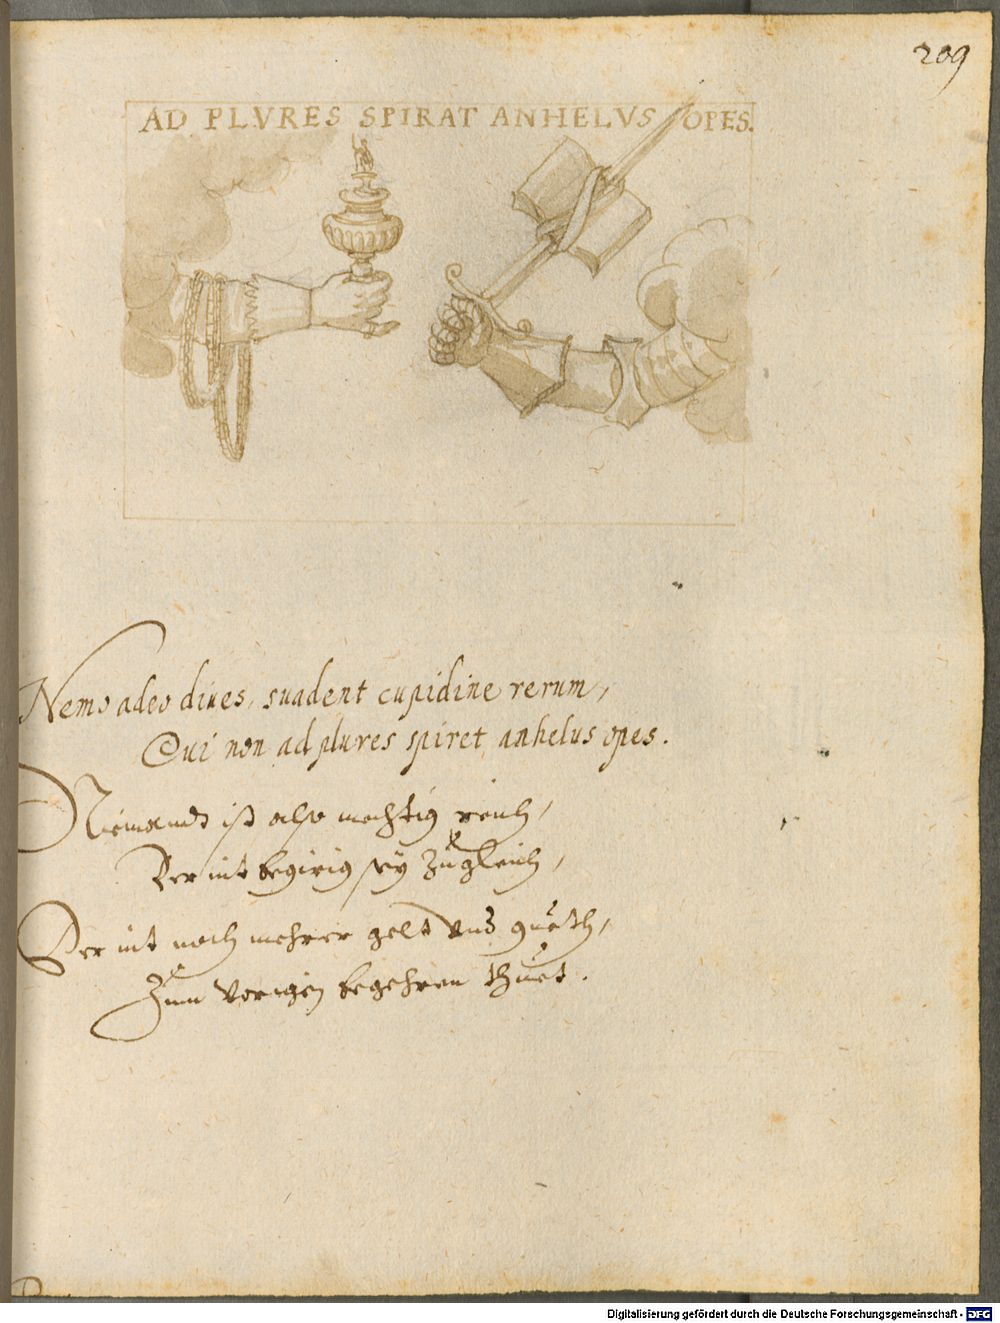 209
AD PLVRES SPIRAT ANHELVS OPES.
Nemo adeo diues, suadent cupidine rerum,
Qui non ad plures spiret anhelus opes.
Niemandt ist also mechtig reich,
Der nit begirig sey zugleich,
Der nit noch mehrer gelt vnd gueth,
Zum vorigen begehren thuet.
Digitalisierung gefördert durch die Deutsche Forschungsgemeinschaft - DFG